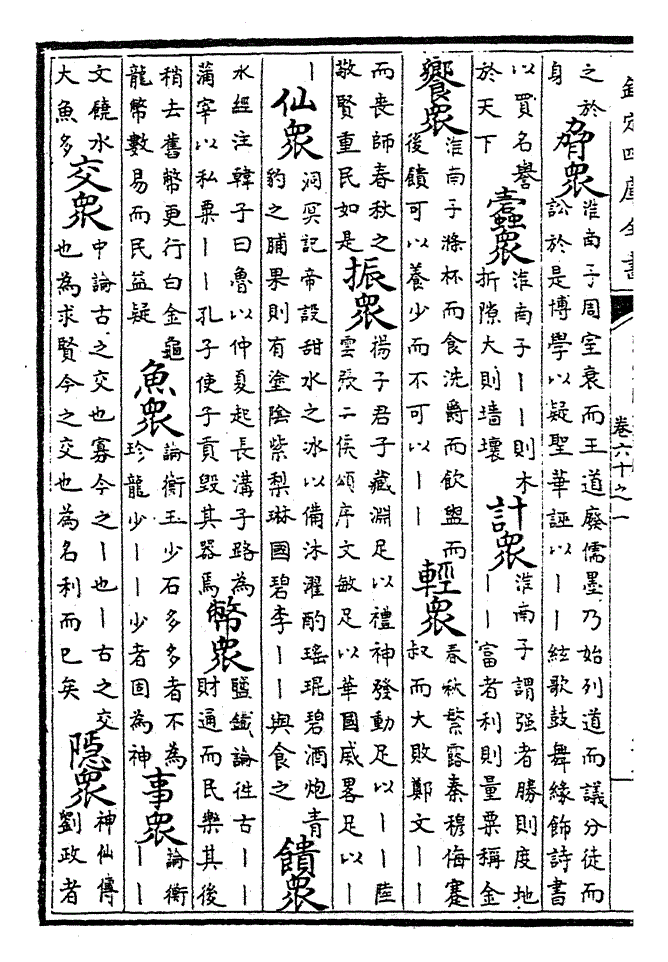 欽定四庫全書
卷六十之一
之於身脅衆淮南子周室衰而王道廢儒墨乃始列道而議分徒而訟於是博學以疑聖華誣以丨丨絃歌鼓舞緣飾詩書
以買名譽於天下蠹衆淮南子丨丨則木折隙大則墻壞計衆淮南子謂强者勝則度地丨丨富者利則量粟稱金
饗衆淮南子滌杯而食洗爵而飲盥而後饋可以養少而不可以丨丨輕衆春秋繁露秦穆侮蹇叔而大敗鄭文丨丨
而喪師春秋之敬賢重民如是振衆揚子君子藏淵足以禮神發動足以丨丨陸雲張二侯頌序文敏足以華國威畧足以丨
丨仙衆洞冥記帝設甜水之冰以備沐濯酌瑶琨碧酒炮青豹之脯果則有塗陰紫梨琳國碧李丨丨與食之饋衆
水經注韓子曰魯以仲夏起長溝子路為蒲宰以私粟丨丨孔子使子貢毀其器焉幣衆鹽鐵論徃古丨丨財通而民樂其後
稍去舊幣更行白金龜龍幣數易而民益疑魚衆論衡玉少石多多者不為珍龍少丨丨少者固為神事衆論衡丨丨
文饒水大魚多交衆中論古之交也寡今之丨也丨古之交也為求賢今之交也為名利而已矣隠衆神仙傳劉政者